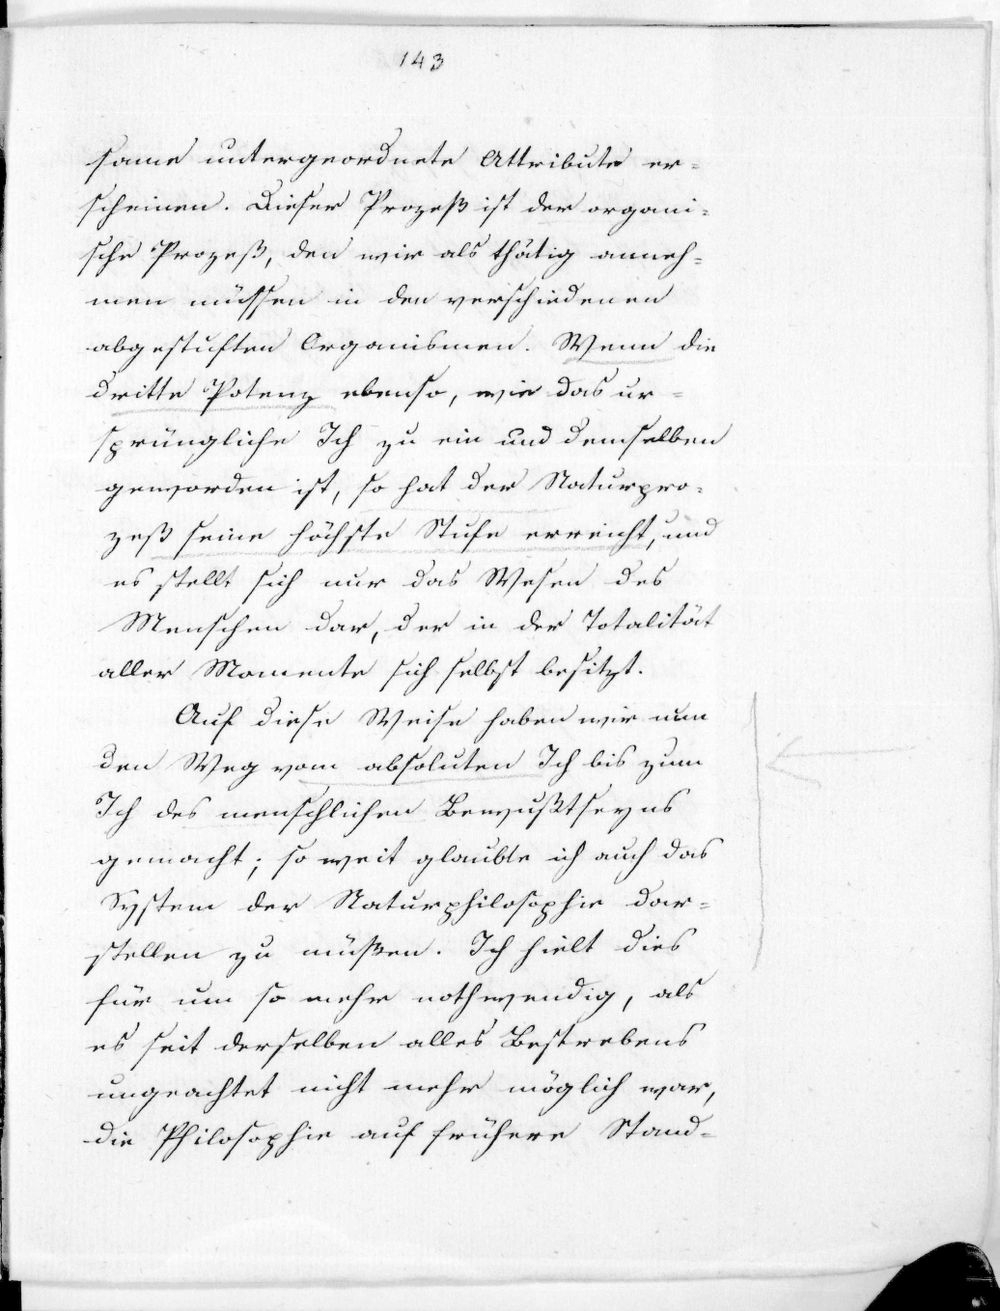 143
same untergeordnete Attribute er=
scheinen. Dieser Prozeß ist der organi=
sche Prozeß, den wir als thätig anneh=
men müssen in den verschiedenen
abgestuften Organismen. Wenn die
dritte Potenz ebenso, wie das ur=
sprüngliche Ich zu ein und demselben
geworden ist, so hat der Naturpro=
zeß seine höchste Stufe erreicht, und
es stellt sich nur das Wesen des
Menschen dar, der in der Totalität
aller Momente sich selbst besitzt.
Auf diese Weise haben wir nun
den Weg vom absoluten Ich bis zum
Ich des menschlichen Bewußtseyns
gemacht; so weit glaubte ich auch das
System der Naturphilosophie dar=
stellen zu müßen. Ich hielt dies
für um so mehr nothwendig, als
es seit derselben alles Bestrebens
ungeachtet nicht mehr möglich war,
die Philosophie auf frühere Stand=